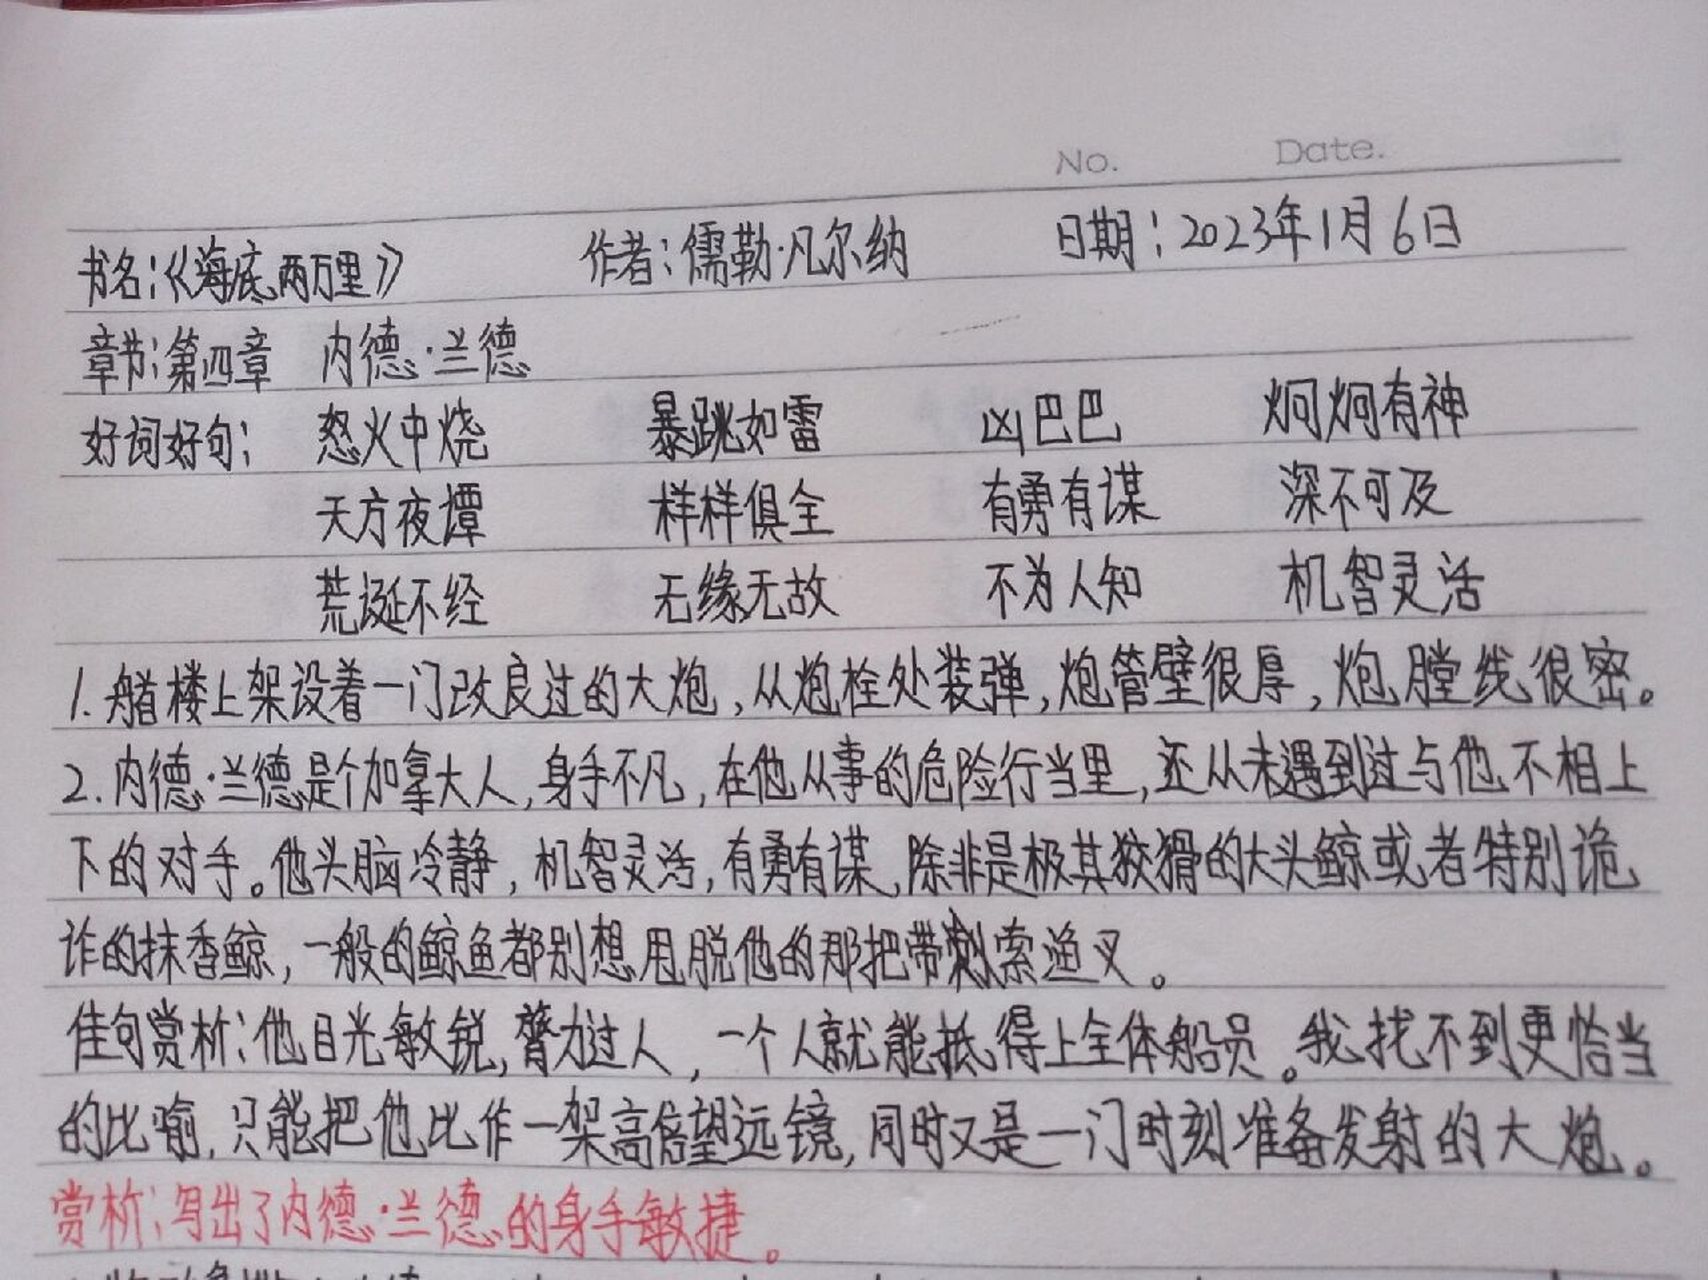 No. Date.
书名:《海底两万里》 作者:儒勒·凡尔纳 日期:2023年1月6日
章节:第四章 内德·兰德
好词好句: 怒火中烧 暴跳如雷 凶巴巴 炯炯有神
天方夜谭 样样俱全 有勇有谋 深不可及
荒诞不经 无缘无故 不为人知 机智灵活
1.艏楼上架设着一门改良过的大炮,从炮栓处装弹,炮管壁很厚,炮膛线很密。
2.内德·兰德是个加拿大人,身手不凡,在他从事的危险行当里,还从未遇到过与他不相上
下的对手。他头脑冷静,机智灵活,有勇有谋,除非是极其狡猾的大头鲸或者特别诡
诈的抹香鲸,一般的鲸鱼都别想甩脱他的那把带刺索渔叉。
佳句赏析:他目光敏锐,膂力过人,一个人就能抵得上全体船员。我找不到更恰当
的比喻,只能把他比作一架高倍望远镜,同时又是一门时刻准备发射的大炮。
赏析:写出了内德·兰德的身手敏捷。